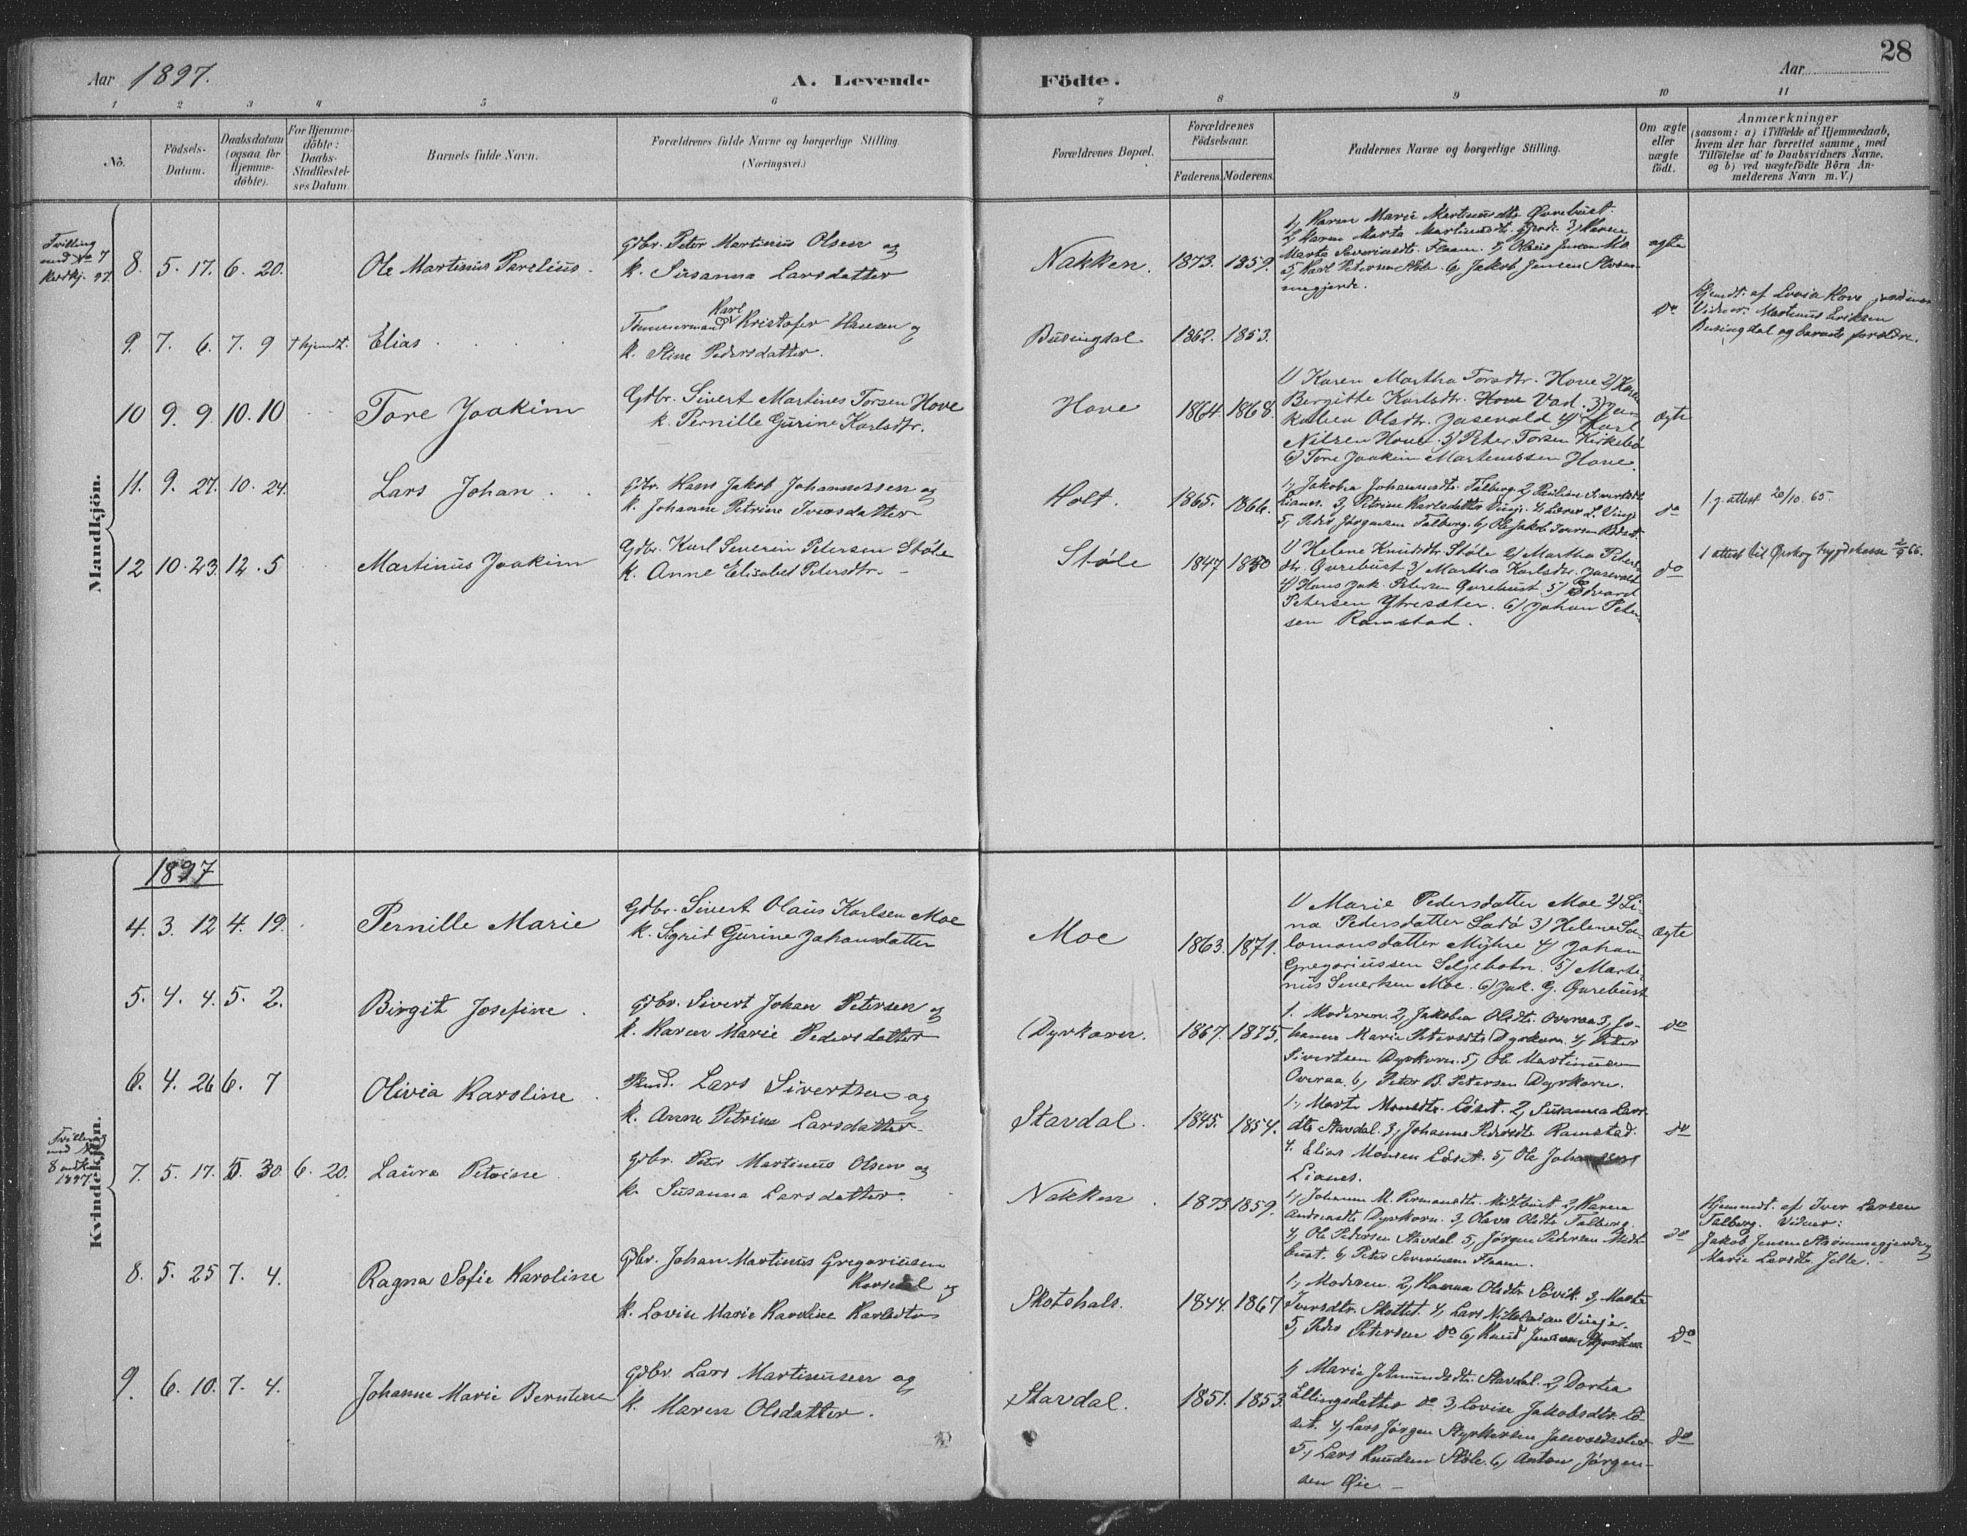 28
Aar 1897.
A. Levende
Födte.
Aar
1 2 3 4 5 6 7 8 9 10 11
No.
Födsels-
Datum.
Daabsdatum
(ogsaa for
Hjemme-
döbte).
For Hjemme-
döbte:
Daabs-
Stadfæstel-
ses Datum.
Barnets fulde Navn.
Forældrenes fulde Navne og borgerlige Stilling
(Næringsvei.)
Forældrenes Bopæl.
Forældrenes
Födselsaar.
Faderens. Moderens.
Faddernes Navne og borgerlige Stilling.
Om ægte
eller
uægte
födt.
Anmærkninger
(saasom: a) i Tilfælde af Hjemmedaab,
hvem der har forrettet samme, med
Tilföielse af to Daabsvidners Navne,
og b) ved uægtefödte Börn An-
melderens Navn m. V.)
Mandkjön.
Tvilling
med No 7
8. 5. 17. 6. 20. Ole Martinus Parelius.
Gdbr. Peter Martinus Olsen og
k. Susanna Larsdatter
Nakken. 1873. 1859.
1, Karen Marie Martinusdtr Øvrebust.
2, Karen Marta Martinusdtr. Gjerde 3, Karen
Marta Severinsdtr. Flaam. 4, Oluis Jensen Mo
5, Karl Petersen Støle. 6, Jakob Jensen Strøm-
megjerde.
ægte
9. 7. 6. 7. 9 Elias
Tømmermand Karl Kristofer Hansen og
k. Stine Pedersdatter.
Busingdal 1862. 1853.
do
Hjemdt. af Lovisa Hove, jordmor
Vidner: Martinus Eriksen
Busingdal og barnets forældre.
10 9. 9. 10. 10 Tore Joakim
Gdbr. Sivert Martines Torsen Hove
k. Pernille Gurine Karlsdtr.
Hove 1864. 1868.
1/ Karen Martha Torsdtr. Hove 2/ Karen
Bergitte Karlsdtr. Vad. 3/
Olsdtr. Jasevold 4/ Karl
Nilsen Hove. 5/ Peter Torsen Kirkebø
6/ Tore Joakim Martinussen Hove.
ægte
11. 9. 27. 10. 24. Lars Johan
Gdbr. Hans Jakob Johannessen og
k. Johanne Petrine Iversdatter
Holt. 1865. 1866.
1, Jakobea Johannesdtr. Talberg. 2, Pauline Sivertsdtr
Lianes. 3, Petrine Karlsdatter Vinje. 4, Lærer L. Vinje
5, Peder Jørgensen Talberg. 6, Ole Jakob Iversen
do
1 g. attest 20/10. 65.
12 10. 23. 12. 5 Martinus Joakim
Gdbr. Karl Severin Petersen Støle
k. Anne Elisabet Petersdtr.
Støle 1847 1850
1/ Helene Knudsdtr. Støle 2/ Martha Peters-
dtr. Øvrebust 3/ Martha Karlsdtr. Jasevold
4/ Hans Jak. Petersen Øvrebust. 5/ Edvard
Petersen Ytresæter. 6/ Johan Peter-
sen Ramstad.
do
1 attest til Ørskog trygdekasse
Kvindekjön.
1897
4. 3. 12 4. 19. Pernille Marie
Gdbr. Sivert Olaus Karlsen Moe
k. Sigrid Gurine Johansdatter
Moe 1863. 1871.
1/ Marie Pedersdatter Moe 2/ Li-
na Pedersdatter Ladø 3/ Helene Sa-
lomonsdatter Myhre 4/ Johan
Gregoriussen Seljebotn. 5/ Marti-
nus Sivertsen Moe. 6/ Jak. G. Øvrebust
ægte
5. 4. 4. 5. 2. Birgit Josefine
Gdbr. Sivert Johan Petersen og
k. Karen Marie Pedersdatter
Dyrkorn. 1867. 1875.
1. Moderen. 2, Jakobea Olsdtr. Overaa 3, Jo-
hanne Marie Petersdtr Dyrkorn. 4, Peter
Sivertsen Dyrkorn. 5, Ole Martinussen
Overaa. 6, Peter B. Petersen Dyrkorn.
do
6. 4. 26 6. 7 Olivia Karoline
Lars Sivertsen og
k. Anne Petrine Larsdatter.
Stavdal. 1845. 1854.
1, Marte Monsdtr. Løset. 2, Susanna Lars-
dtr Stavdal. 3, Johanne Pedersdtr Ramstad.
4. Elias Monsen Løset. 5, Ole Johansen
Lianes.
do
Tvilling
med No
8
1897
7. 5. 17. 5. 30 6. 20. Laura Petrine
Gdbr. Peter Martinus Olsen og
k. Susanna Larsdatter.
Nakken 1873 1859.
1, Johanne M. Midtbust. 2, Karen
Dyrkorn. 3, Olava Olsdtr Talberg.
4, Ole Pedersen Stavdal. 5, Jørgen Pedersen Midt-
bust. 6, Peter Severinsen Flaam.
do
Hjemmedt. af Iver Larsen
Talberg. Vidner:
Jakob Jensen Strømmegjerde og
Marie Larsdtr. Jelle.
8. 5. 25 7. 4. Ragna Sofie Karoline
Gdbr. Johan Martinus Gregoriusen
og
k. Lovise Marie Karoline Karlsdtr
Skotshals. 1844. 1867
1, Moderen. 2, Hanna Olsdtr. Søvik. 3, Marte
Iversdtr. Skottet. 4, Lars Nikolaisen Vinje.
5, Peder Petersen do 6, Knud Jensen
do
9. 6. 10. 7. 4. Johanne Marie Berntine
Gdbr. Lars Martinussen og
k. Maren Olsdatter.
Stavdal. 1851. 1853.
1, Marie Jetmundsdtr. Stavdal. 2, Dortea
Ellingsdatter do 3, Lovise Jakobsdtr. Lø-
set. 4, Lars Jørgen Styrkersen
5, Lars Knudsen Støle. 6, Anton Jørgen-
sen Øie
do